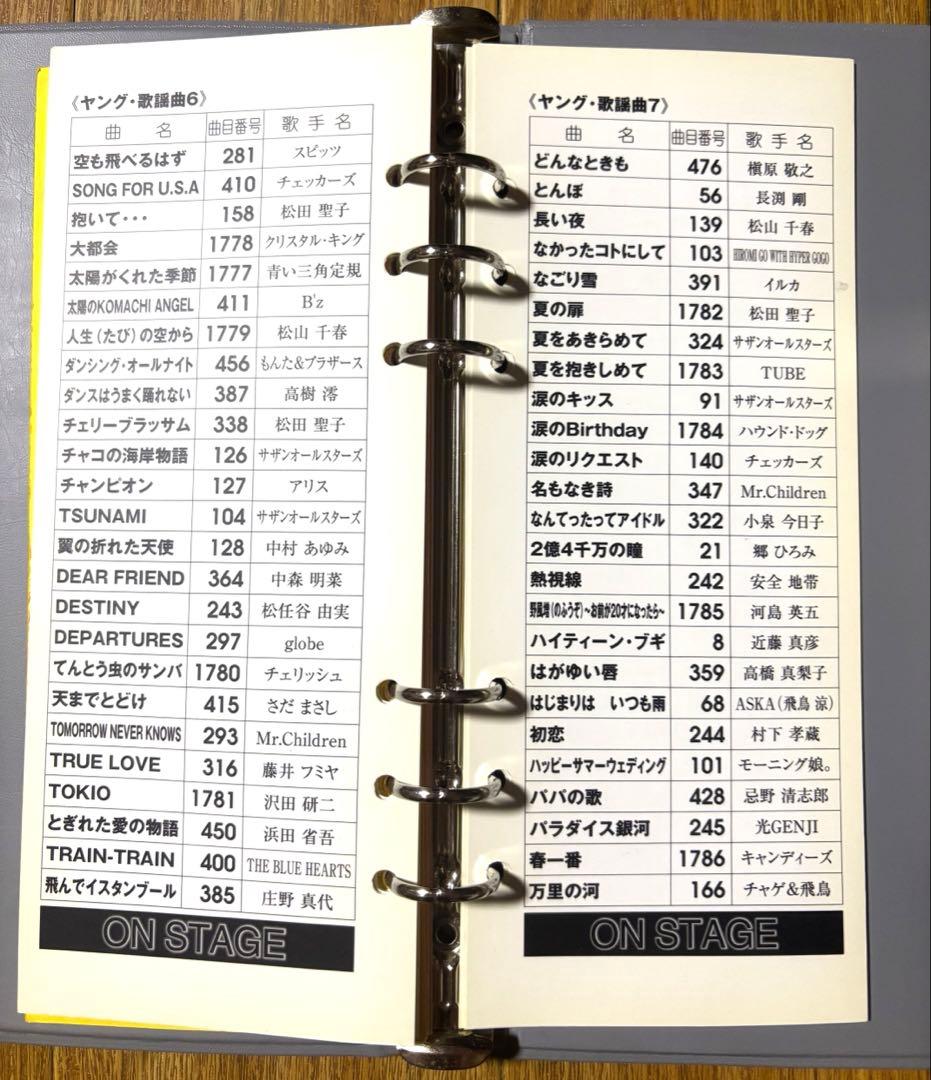 《ヤング・歌謡曲6》
曲 名 曲目番号 歌手名
空も飛べるはず 281 スピッツ
SONG FOR U.S.A 410 チェッカーズ
抱いて・・・ 158 松田 聖子
大都会 1778 クリスタル・キング
太陽がくれた季節 1777 青い三角定規
太陽のKOMACHI ANGEL 411 B'z
人生(たび)の空から 1779 松山 千春
ダンシング・オールナイト 456 もんた&ブラザース
ダンスはうまく踊れない 387 高樹 澪
チェリーブラッサム 338 松田 聖子
チャコの海岸物語 126 サザンオールスターズ
チャンピオン 127 アリス
TSUNAMI 104 サザンオールスターズ
翼の折れた天使 128 中村 あゆみ
DEAR FRIEND 364 中森 明菜
DESTINY 243 松任谷 由実
DEPARTURES 297 globe
てんとう虫のサンバ 1780 チェリッシュ
天までとどけ 415 さだ まさし
TOMORROW NEVER KNOWS 293 Mr.Children
TRUE LOVE 316 藤井 フミヤ
TOKIO 1781 沢田 研二
とぎれた愛の物語 450 浜田 省吾
TRAIN-TRAIN 400 THE BLUE HEARTS
飛んでイスタンブール 385 庄野 真代
ON STAGE
《ヤング・歌謡曲7》
曲 名 曲目番号 歌手名
どんなときも 476 槇原 敬之
とんぼ 56 長渕 剛
長い夜 139 松山 千春
なかったコトにして 103 HIROMI GO WITH HYPER GOGO
なごり雪 391 イルカ
夏の扉 1782 松田 聖子
夏をあきらめて 324 サザンオールスターズ
夏を抱きしめて 1783 TUBE
涙のキッス 91 サザンオールスターズ
涙のBirthday 1784 ハウンド・ドッグ
涙のリクエスト 140 チェッカーズ
名もなき詩 347 Mr.Children
なんてったってアイドル 322 小泉 今日子
2億4千万の瞳 21 郷 ひろみ
熱視線 242 安全 地帯
野風増(のふうぞ)~お前が20才になったら~ 1785 河島 英五
ハイティーン・ブギ 8 近藤 真彦
はがゆい唇 359 高橋 真梨子
はじまりは いつも雨 68 ASKA(飛鳥 涼)
初恋 244 村下 孝蔵
ハッピーサマーウェディング 101 モーニング娘。
パパの歌 428 忌野 清志郎
パラダイス銀河 245 光GENJI
春一番 1786 キャンディーズ
万里の河 166 チャゲ&飛鳥
ON STAGE